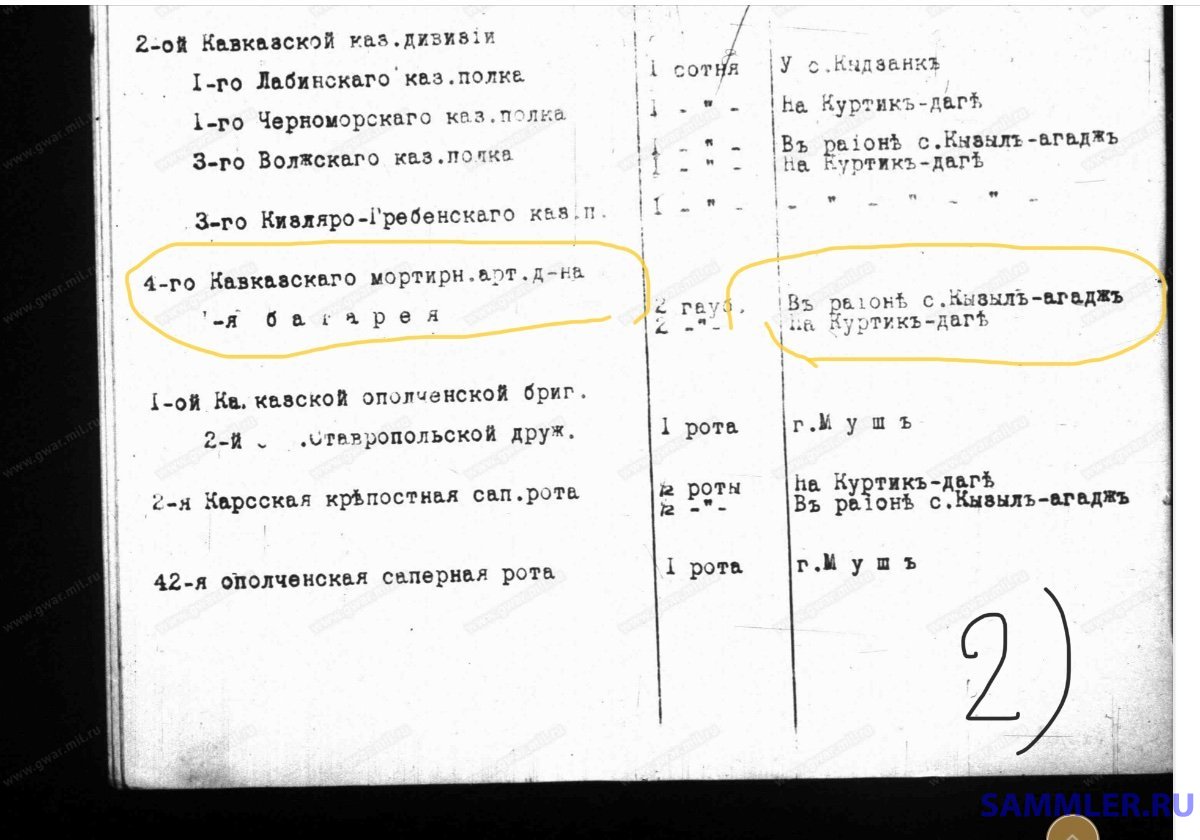 2-ой Кавказской каз.дивизіи
I-го Лабинскаго каз.полка I сотня У с.Кыдзанкъ
I-го Черноморскаго каз.полка I - " - На Куртикъ-дагѣ
3-го Волжскаго каз.полка I - " - Въ раіонѣ с.Кызылъ-агаджъ
I - " - На Куртикъ-дагѣ
3-го Кизляро-Гребенскаго каз.п. I - " - - " - " - " -
4-го Кавказскаго мортирн.арт.д-на
-я б а т а р е я 2 гауб. Въ раіонѣ с.Кызылъ-агаджъ
2 -"- На Куртикъ-дагѣ
I-ой Ка.казской ополченской бриг.
2-й .Ставропольской друж. I рота г.М у ш ъ
2-я Карсская крѣпостная сап.рота роты На Куртикъ-дагѣ
-"- Въ раіонѣ с.Кызылъ-агаджъ
42-я ополченская саперная рота I рота г.М у ш ъ
2)
www.gwar.mil.ru
SAMMLER.RU